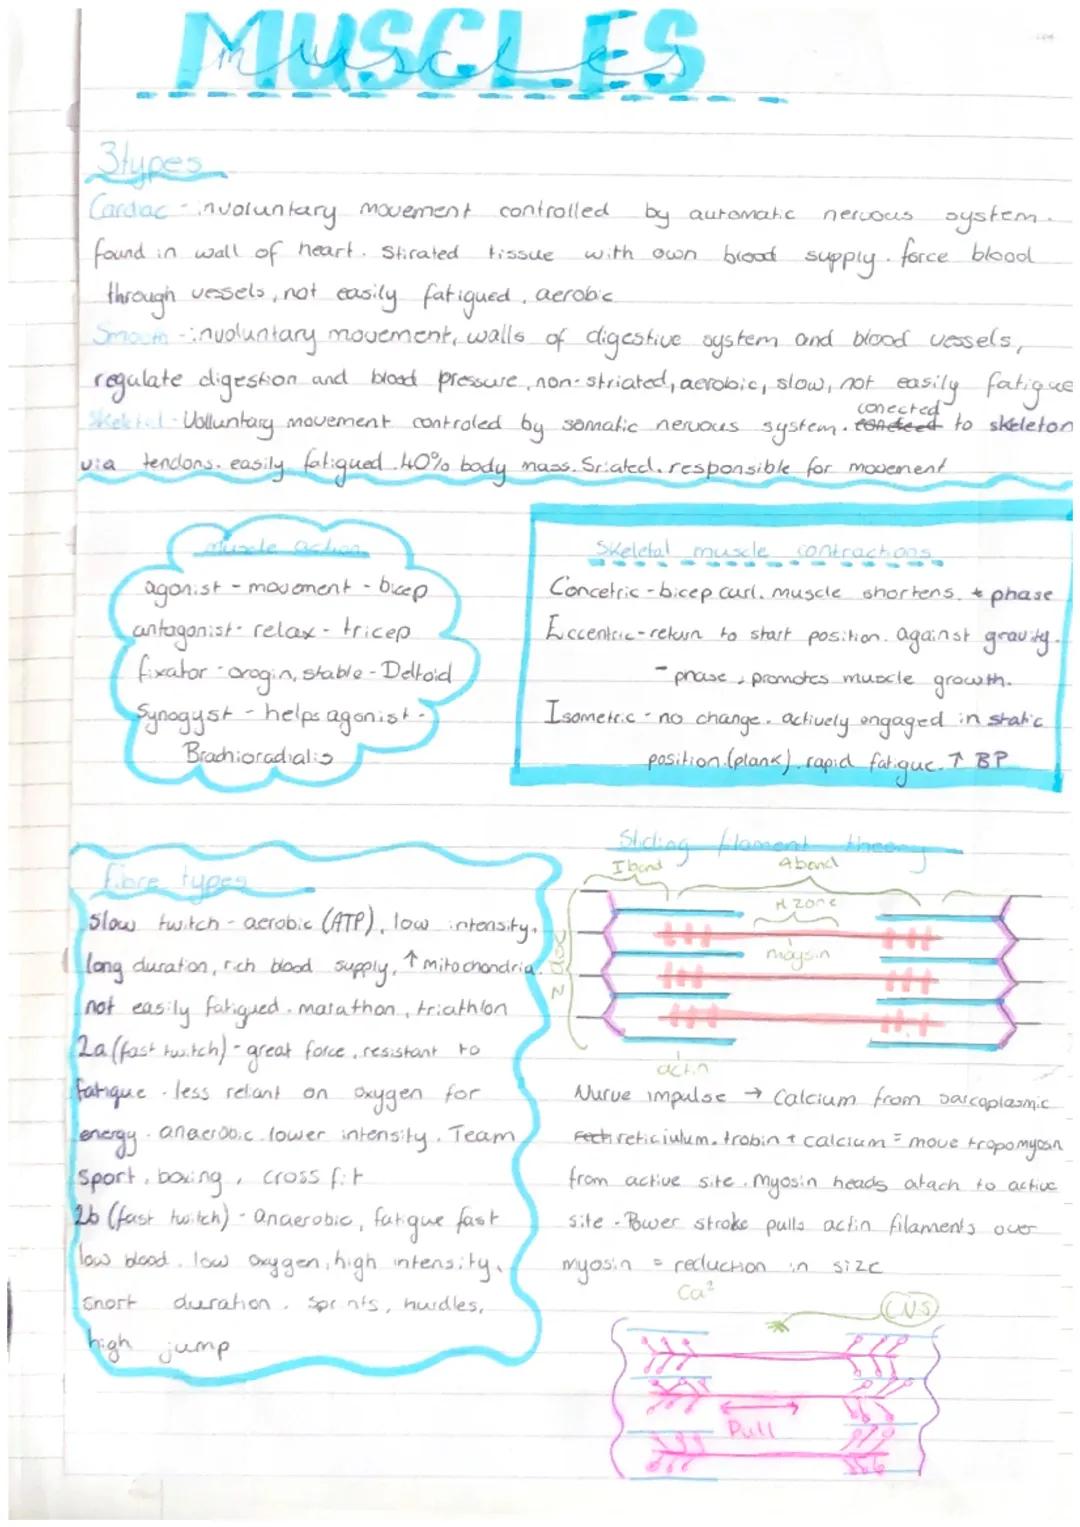 MUSCLES
muscles
3types
Cardiac - involuntary movement controlled by automatic nervous system.
found in wall of heart. Stirated tissue with own blood supply. force blood
through vessels, not easily fatigued, aerobic
Smooth - involuntary movement, walls of digestive system and blood vessels,
regulate digestion and blood pressure, non-striated, aerobic, slow, not easily fatigue
Skeletal - Volluntary movement controled by somatic nervous system. conected to skeleton
via tendons. easily fatigued. 40% body mass. Sriated. responsible for movement
Muscle action
agonist - movement - bicep
antagonist - relax - tricep
fixator - orogin, stable - Deltoid
Synogyst - helps agonist -
Brachioradialis
Skeletal muscle contractions
Concetric - bicep curl. muscle shortens. + phase
Eccentric - return to start position. against gravity.
- phase, promotes muscle growth.
Isometric - no change. actively engaged in static
position (plank). rapid fatigue. ↑ BP
fibre types
Slow twitch - aerobic (ATP), low intensity,
long duration, rich blood supply, ↑ mitochondria.
not easily fatigued. marathon, triathlon
2a (fast twitch) - great force, resistant to
fatigue. less reliant on oxygen for
energy. anaerobic. lower intensity. Team
sport, boxing, cross fit
2b (fast twitch) - anaerobic, fatigue fast
low blood, low oxygen, high intensity,
short duration. sprints, hurdles,
high jump
Sliding filament theory
I band
A band
H zone
Z disc
mysin
actin
Nurve impulse → Calcium from sarcoplasmic
reticiulum. trobin + calcium = move tropomyosin
from active site. Myosin heads atach to active
site. Power stroke pulls actin filaments over
myosin = reduction in size
Ca²
CNS
Pull